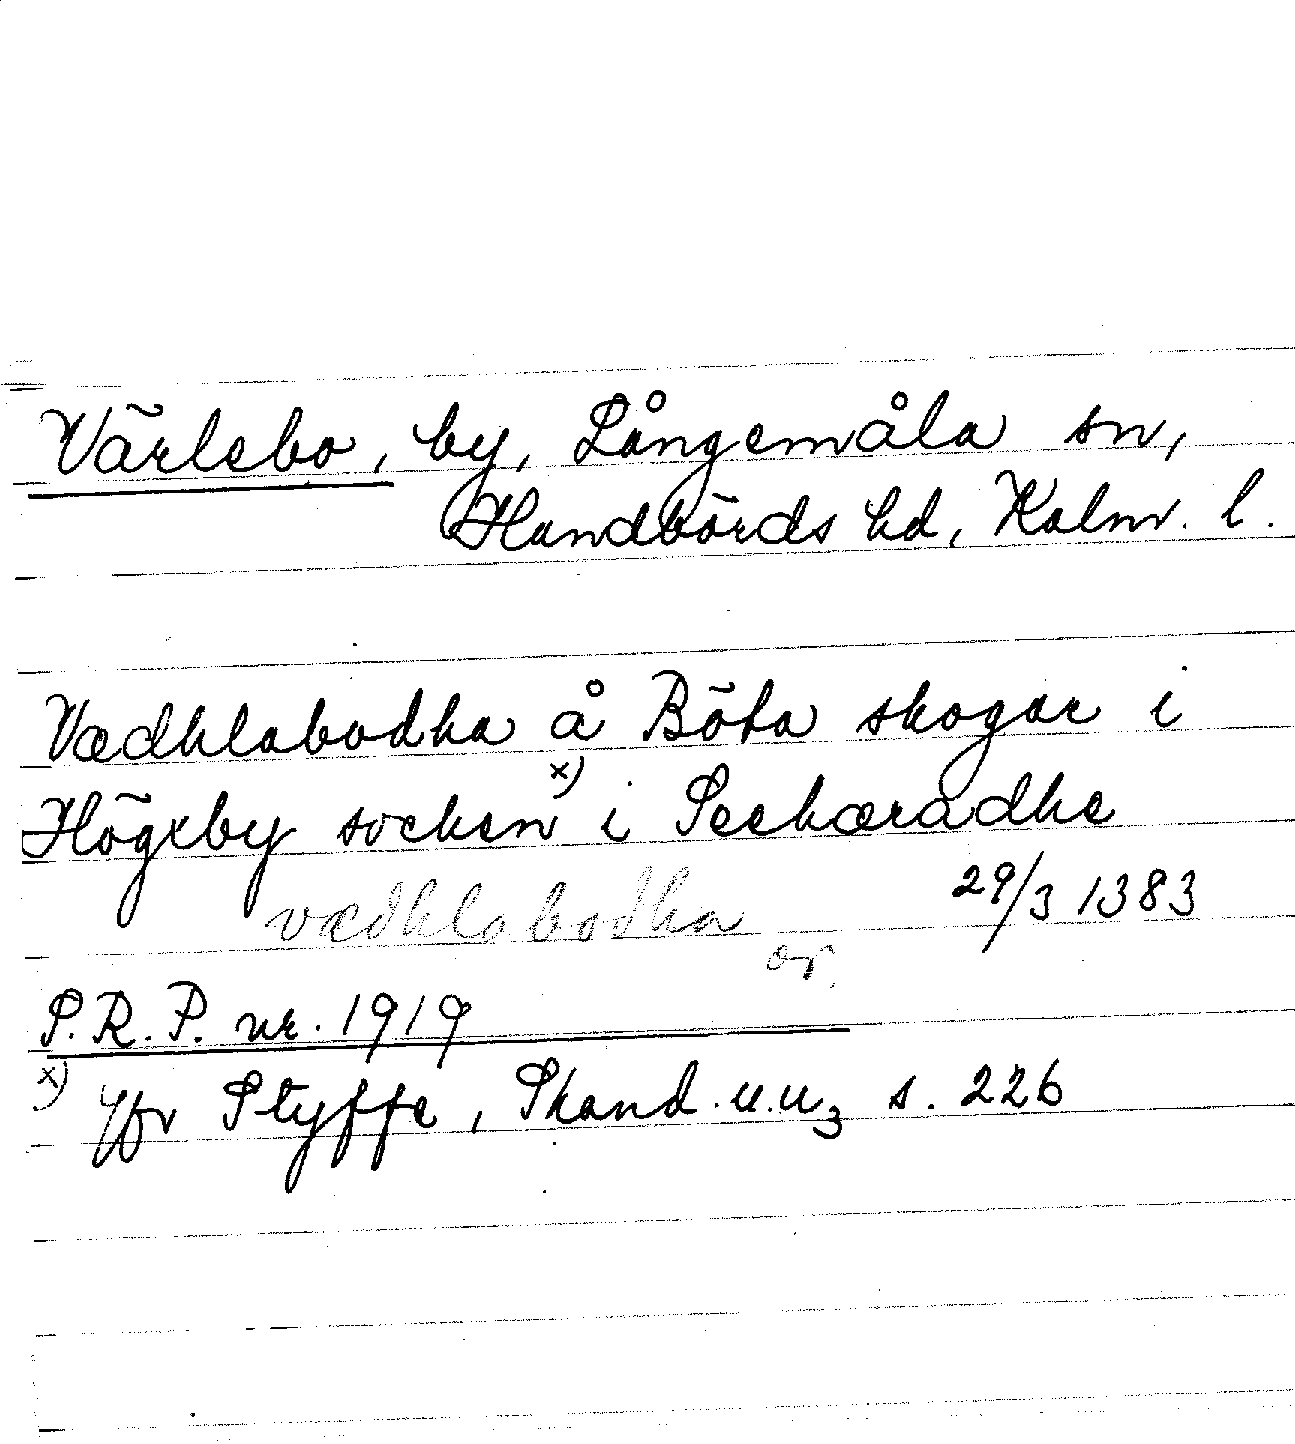 Värlebo, by, Långemåla sn,
Handbörds hd, Kalm. l.
Vædhlabodha å Böta skogar i
Högxby socken x) i Seehæradhe
29/3 1383
vædhlabodha
or.
S.R.P. nr. 1919
x) Jfr Styffe, Skand. u. u3 s. 226